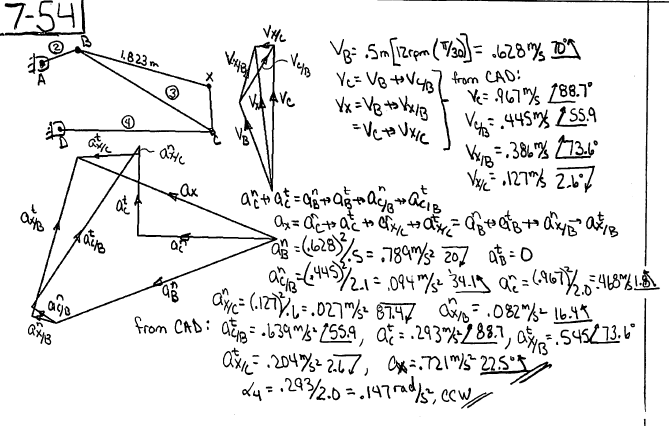 7-54
② B
A
1.823m
X
③
④
D
C
V_X/C
V_X/B
V_C/B
V_X
V_C
V_B
V_B = .5m[12rpm (π/30)] = .628 m/s 70°
V_C = V_B +> V_C/B
V_X = V_B +> V_X/B
= V_C +> V_X/C
from CAD:
V_C = .967 m/s 88.7°
V_C/B = .445 m/s 55.9
V_X/B = .386 m/s 73.6°
V_X/C = .127 m/s 2.6°
a^t_X/C
a^n_X/C
a_X
a^t_C
a^t_X/B
a^t_C/B
a^n_C
a^n_B
a^n_C/B
a^n_X/B
a^n_C +> a^t_C = a^n_B +> a^t_B +> a^n_C/B +> a^t_C/B
a_X = a^n_C +> a^t_C +> a^n_X/C +> a^t_X/C = a^n_B +> a^t_B +> a^n_X/B +> a^t_X/B
a^n_B = (.628)²/.5 = .789 m/s² 20 a^t_B = 0
a^n_C/B = (.445)²/2.1 = .094 m/s² 34.1 a^n_C = (.967)²/2.0 = .468 m/s 1.3
a^n_X/C = (.127)²/.6 = .027 m/s² 87.4 a^n_X/B = .082 m/s² 16.4
from CAD: a^t_C/B = .639 m/s² 55.9, a^t_C = .293 m/s² 88.7, a^t_X/B = .545 73.6°
a^t_X/C = .204 m/s² 2.6, a_X = .721 m/s² 22.5°
α₄ = .293/2.0 = .147 rad/s², CCW